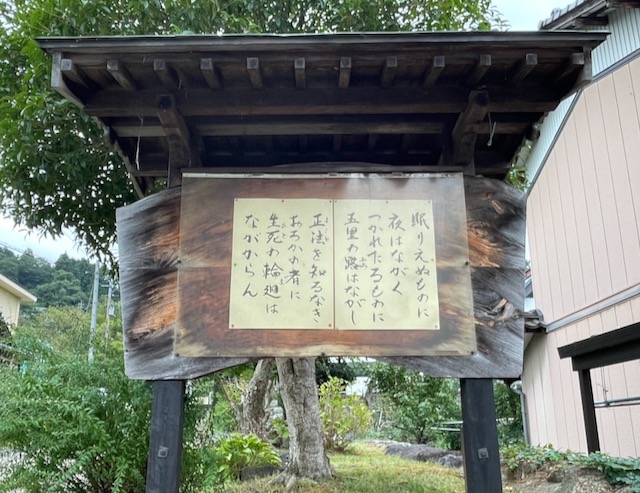 眠りえぬものに
夜はながく
つかれたるものに
五里の路はながし
正法を知るなき
おろかの者に
生死の輪廻は
ながからん